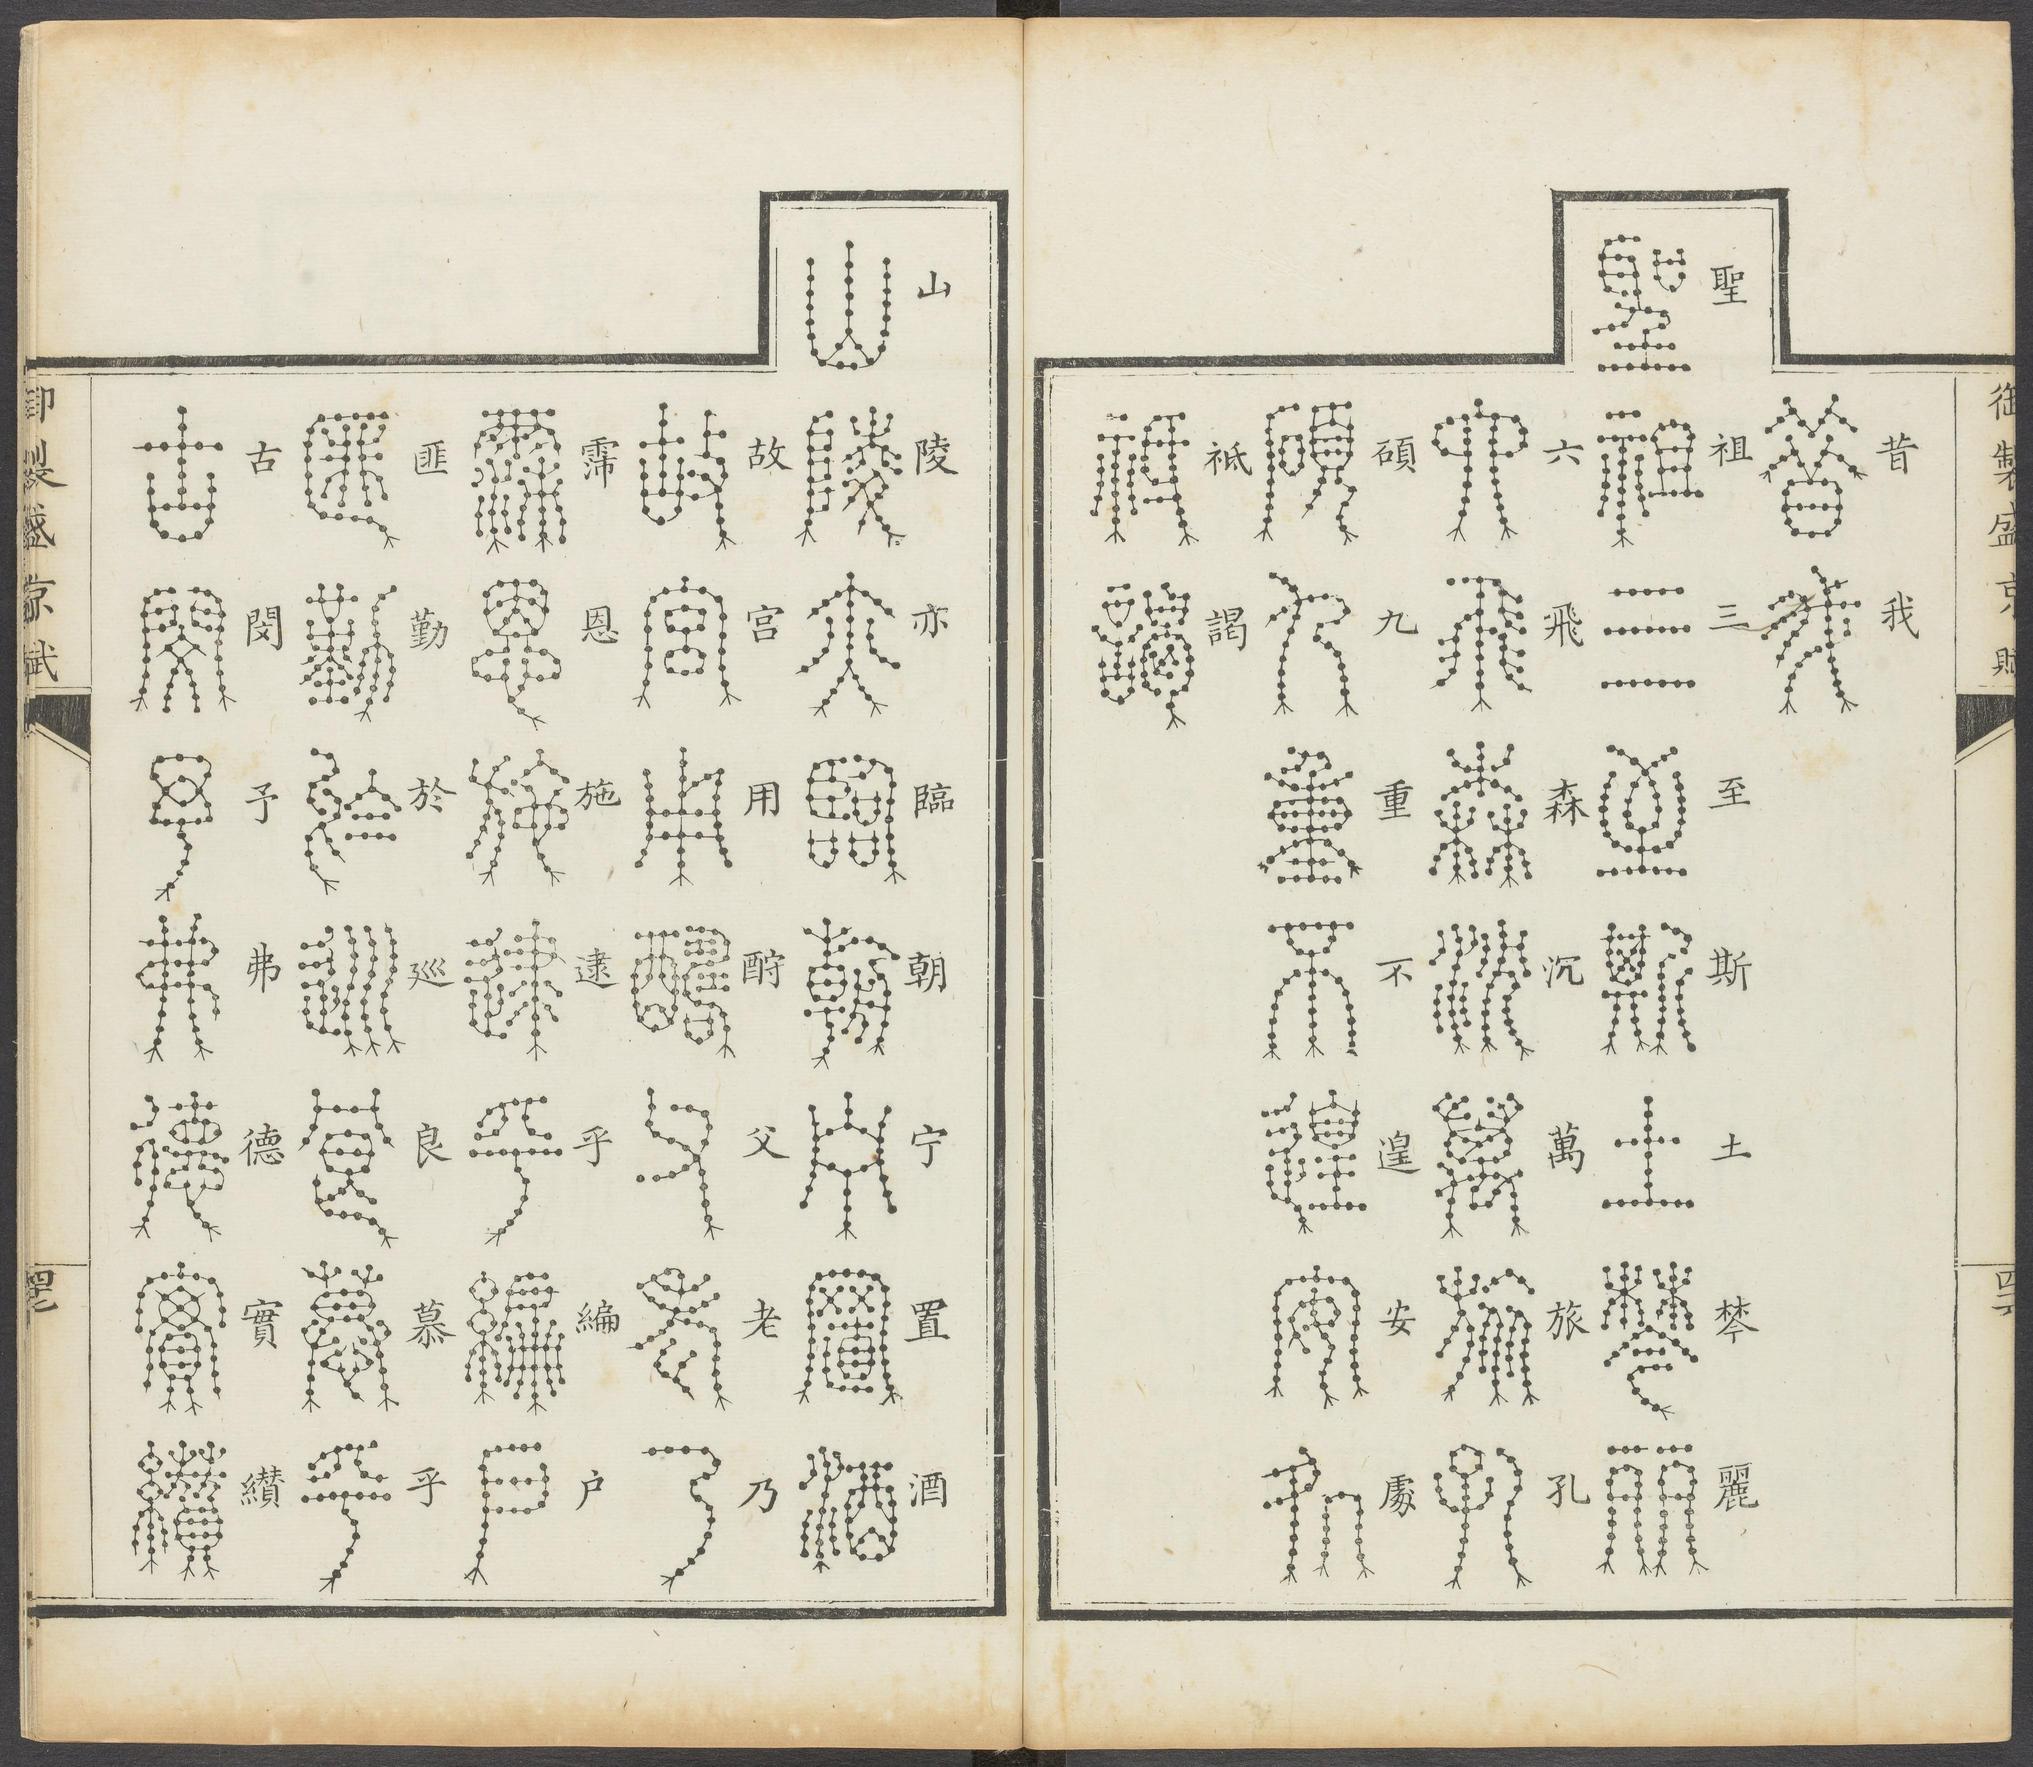 御製盛京賦
昔我
聖祖三至斯土棽麗
六飛森沉萬旅孔
碩九重不遑安處
祗謁
山陵亦臨朝宁置酒
故宮用酧父老乃
霈恩施逮乎編户
匪勤於巡良慕乎
古閔予弗德實纘
御製盛京賦